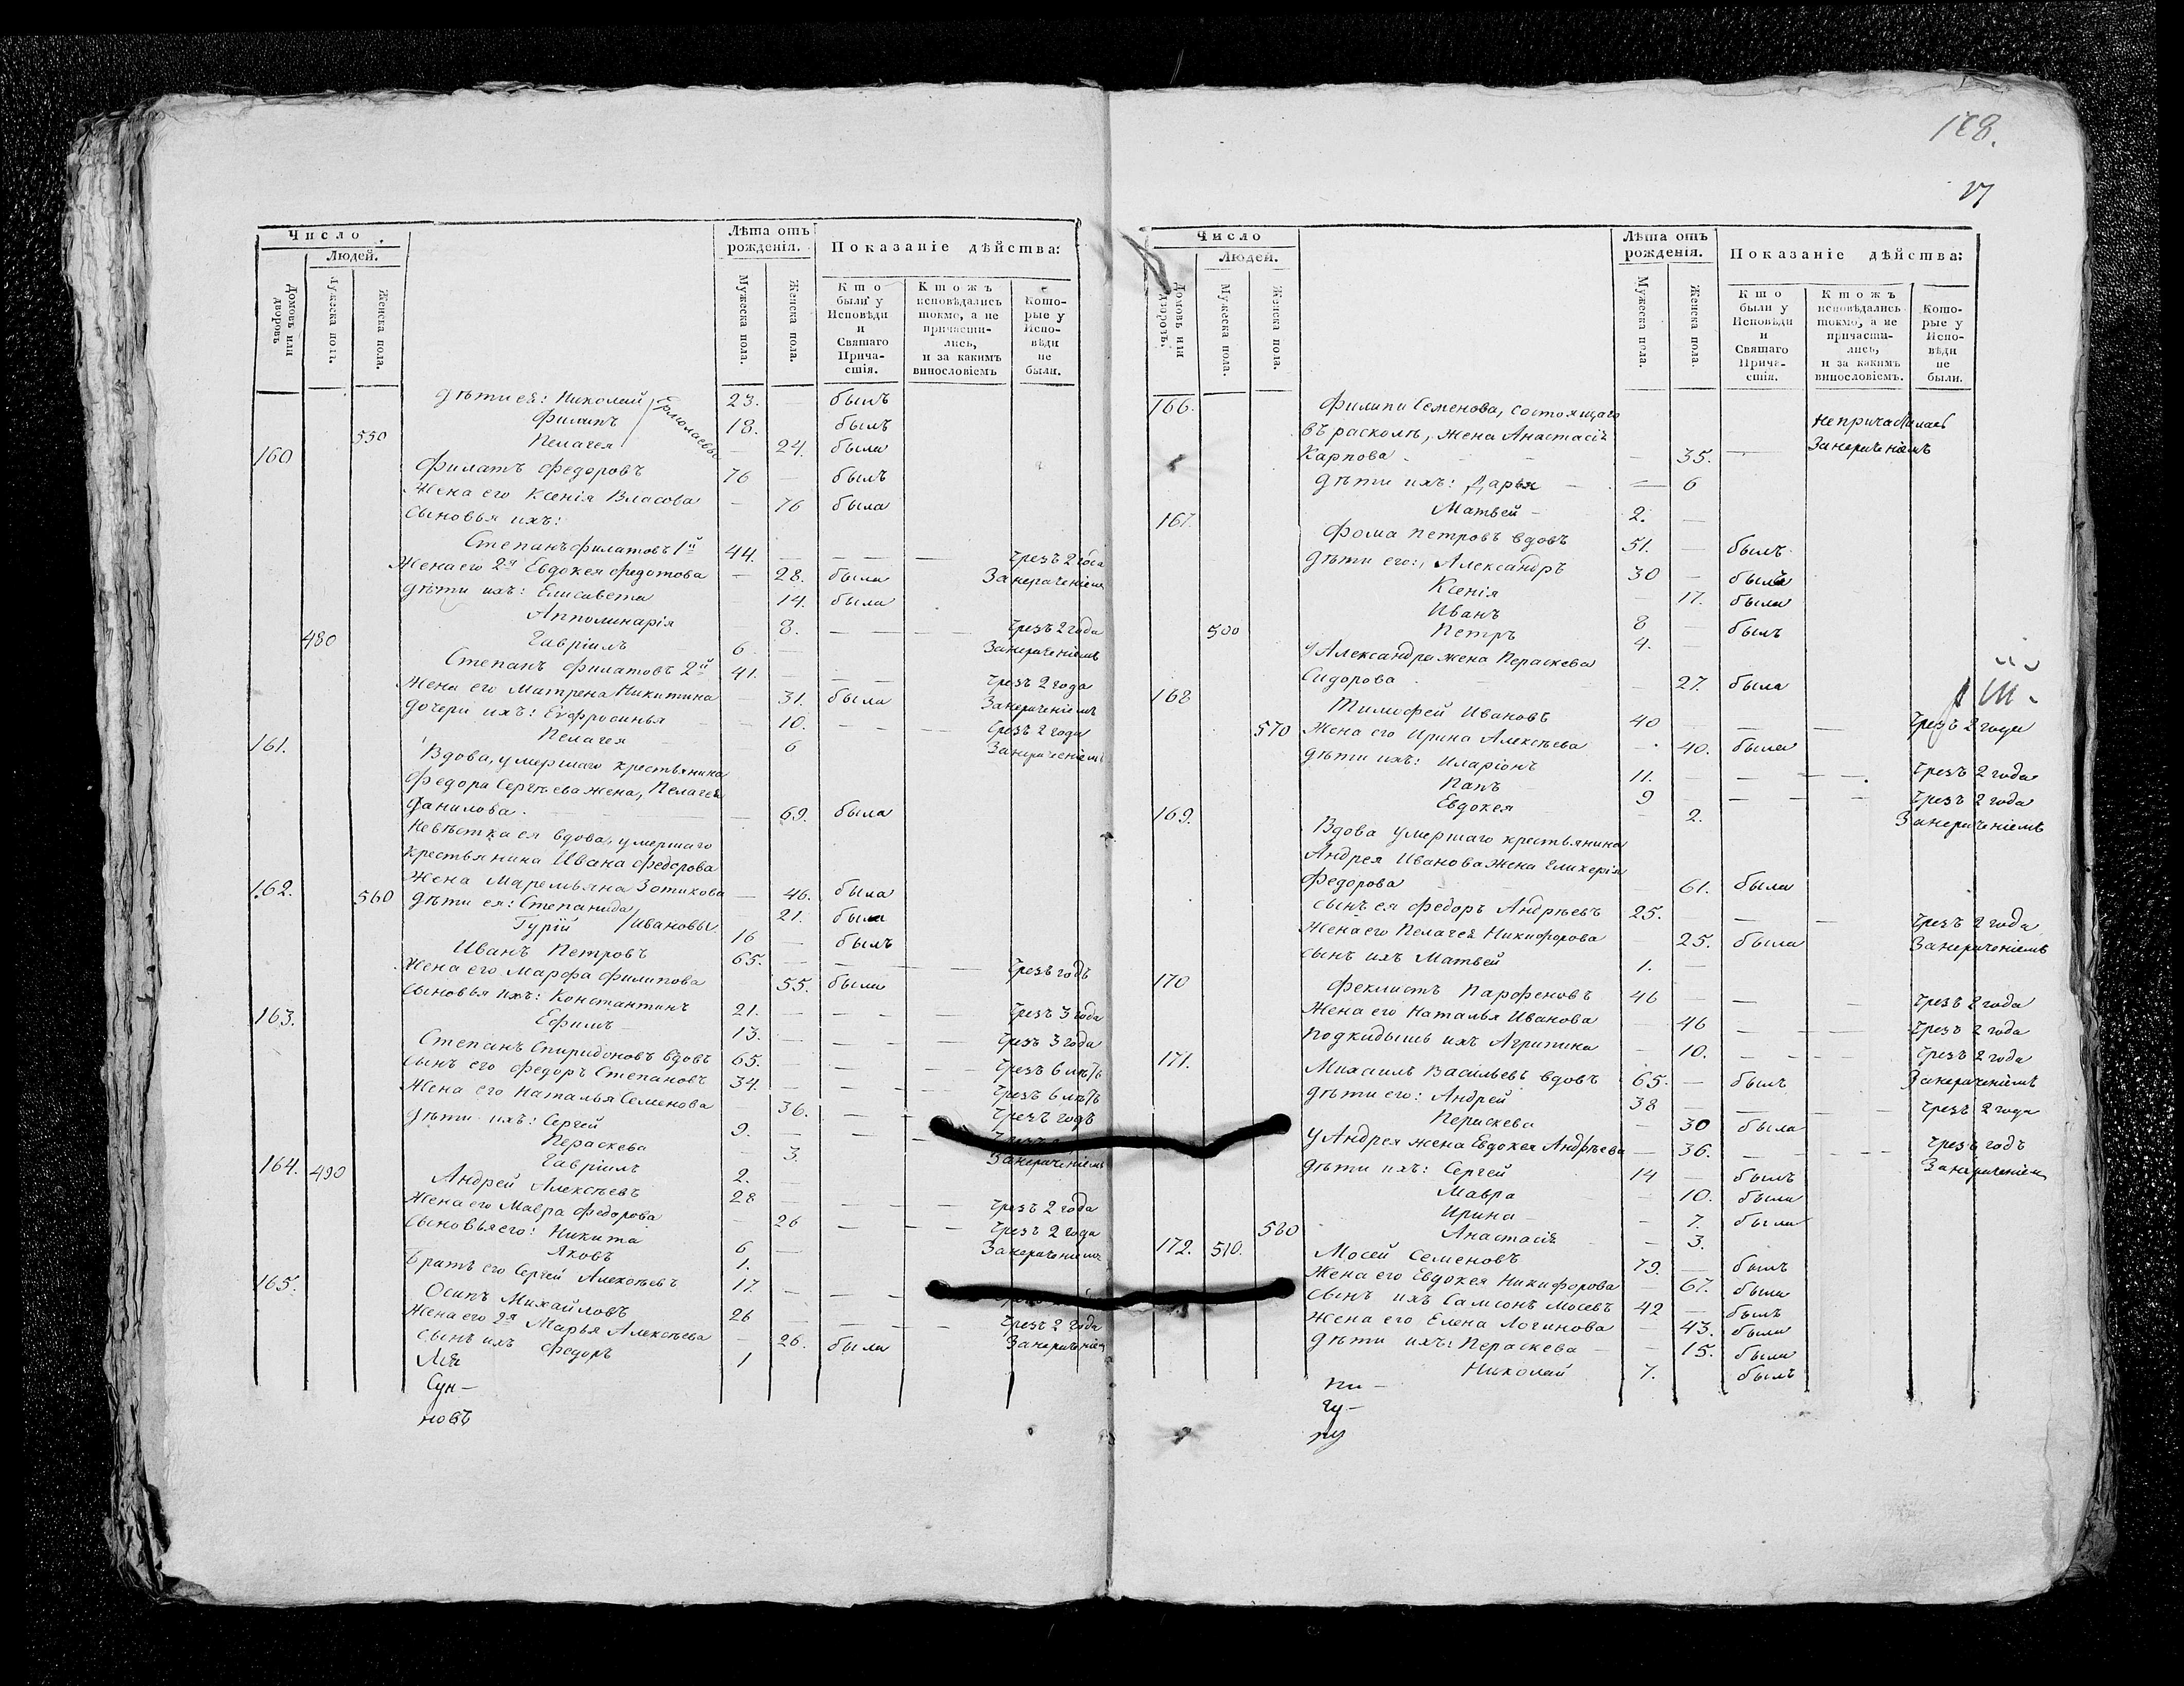 168.
27
Число
Людей.
Домовъ или дворовъ.
Мужеска пола.
Женска пола.
Лѣта отъ рожденія.
Мужеска пола.
Женска пола.
Показаніе дѣйства:
Кто были у Исповѣди и Святаго Причастія.
Ктожъ исповѣдались токмо, а не причастились, и за какимъ винословіемъ
Которые у Исповѣди не были.
дѣти ея: Николай 23. — былъ
Филипъ 18. былъ
550 Пелагея Ермолаевы — 24. была
160 Филатъ Федоровъ 76 — былъ
Жена его Ксенія Власова — 76 была
Сыновья ихъ:
Степанъ Филатовъ 1й 44. — — — Чрезъ 2 года
Жена его 2я Евдокея Федотова — 28. была Занераченіемъ
дѣти ихъ: Елисавета 14. была
Апполинарія 8. — — — Чрезъ 2 года
480 Гавріилъ 6 — Занераченіемъ
Степанъ Филатовъ 2й 41. — — — Чрезъ 2 года
Жена его Матрена Никитина 31. была Занераченіемъ
дочери ихъ: Евфросинья — 10. — — — Чрезъ 2 года
Пелагея — 6 Занераченіемъ
161. Вдова, умершаго крестьянина
Федора Сергѣева жена, Пелагея
Данилова. — 69. была
Невѣстка ея вдова, умершаго
крестьянина Ивана Федорова
жена Маремьяна Зотикова — 46. была
560 дѣти ея: Степанида 21. была
Гурій Ивановы 16 — былъ
162. Иванъ Петровъ 65. — — — Чрезъ годъ
Жена его Марфа Филипова 55. была
Сыновья ихъ: Константинъ 21. — — — Чрезъ 3 года
Ефимъ — 13. — — — Чрезъ 3 года
163. Степанъ Спиридоновъ вдовъ 65. — — — Чрезъ 6 лѣтъ
Сынъ его Федоръ Степановъ 34. — — — Чрезъ 6 лѣтъ
Жена его Наталья Семенова — 36. — — Чрезъ годъ
дѣти ихъ: Сергей 9. — — —
Пераскева — 3. Занераченіемъ
490 Гавріилъ 2.
164. Андрей Алексѣевъ 28 — — — Чрезъ 2 года
Жена его Мавра Федорова — 26 — — — Чрезъ 2 года
Сыновья его: Никита 6 — Занераченіемъ
Яковъ 1.
братъ его Сергей Алексѣевъ 17. — — —
165. Осипъ Михайловъ 26 — — — Чрезъ 2 года
Жена его 2я Марья Алексѣева — 26. была Занераченіемъ
Сынъ ихъ Федоръ 1
Сун-
новъ
Число
Людей.
Домовъ или дворовъ.
Мужеска пола.
Женска пола.
Лѣта отъ рожденія.
Мужеска пола.
Женска пола.
Показаніе дѣйства:
Кто были у Исповѣди и Святаго Причастія.
Ктожъ исповѣдались токмо, а не причастились, и за какимъ винословіемъ.
Которые у Исповѣди не были.
166. Филипа Семенова, состоящаго
въ расколѣ, жена Анастасія непричастилась
Карпова — — 35. — Занераченіемъ
дѣти ихъ: Дарья — — 6
Матвей — 2. —
167. Фома Петровъ вдовъ 51. — былъ
дѣти его: Александръ 30 — былъ
Ксенія — 17. была
Иванъ 8 — былъ
500 Петръ 4. —
у Александра жена Пераскева
Сидорова — 27. была
168 Тимофей Ивановъ 40 — — — Чрезъ 2 года
570 Жена его Ирина Алексѣева — 40. была
дѣти ихъ: Иларіонъ 11. — — — Чрезъ 2 года
Папъ 9 — — — Чрезъ 2 года
Евдокея — 2. Занераченіемъ
169. Вдова умершаго крестьянина
Андрея Иванова жена Гликерія
Федорова — 61. была
сынъ ея Федоръ Андрѣевъ 25. — — — Чрезъ 2 года
Жена его Пелагея Никифорова — 25. была Занераченіемъ
сынъ ихъ Матвей 1. —
170 Феклистъ Парфеновъ 46 — — — Чрезъ 2 года
Жена его Наталья Иванова — 46 — — — Чрезъ 2 года
подкидышъ ихъ Агрипина — 10. — — — Чрезъ 2 года
171. Михаилъ Васильевъ вдовъ 65. — былъ Занераченіемъ
дѣти его: Андрей 38 — — — Чрезъ 2 года
Пераскева — 30 была
у Андрея жена Евдокея Андрѣева — 36. — — — Чрезъ годъ
дѣти ихъ: Сергей 14 — былъ Занераченіемъ
Мавра — 10. была
Ирина — 7. была
580 Анастасія — 3.
172. 510. Мосей Семеновъ 79. — былъ
Жена его Евдокея Никифорова — 67. была
Сынъ ихъ Самсонъ Мосевъ 42 — былъ
Жена его Елена Логинова — 43. была
дѣти ихъ: Пераскева — 15. была
Николай 7. былъ
гу-
ну